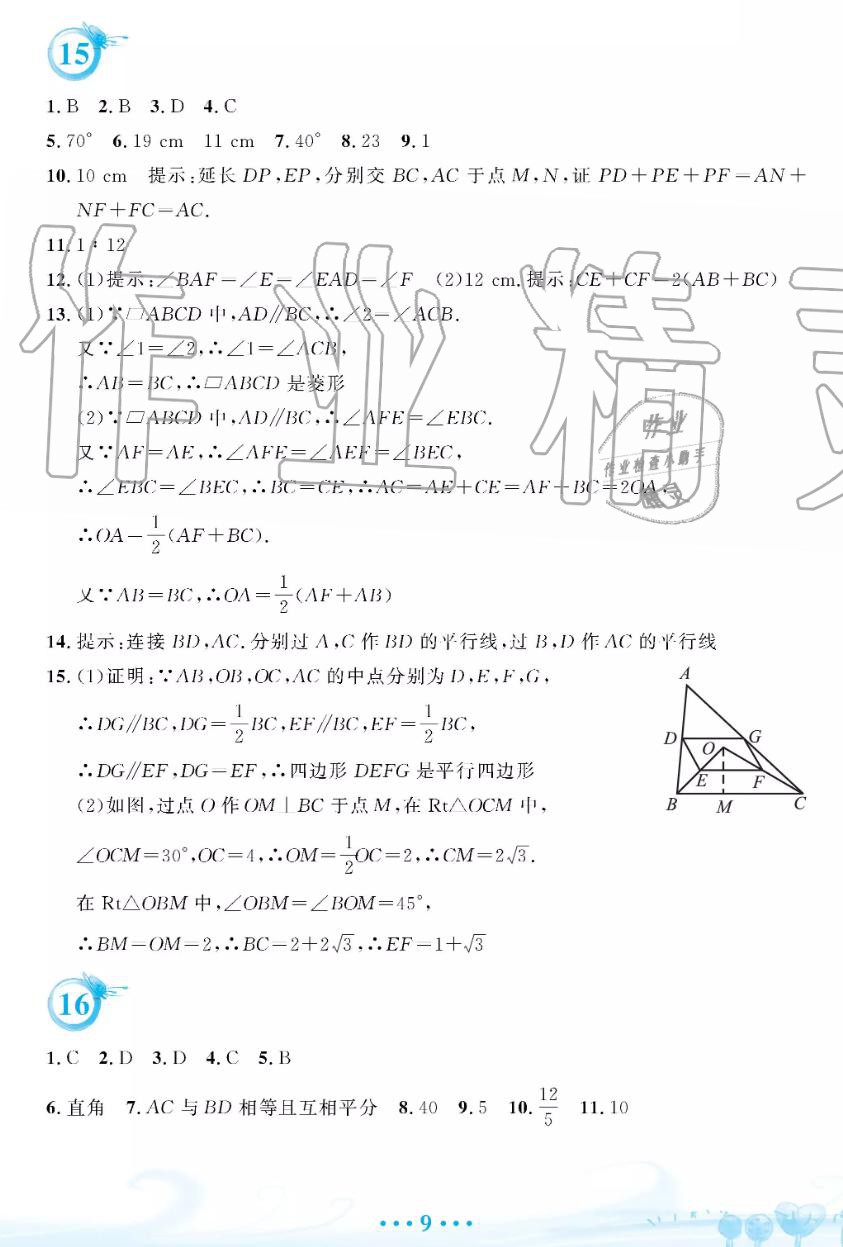 15
1. B 2. B 3. D 4. C
5. 70° 6. 19 cm 11 cm 7. 40° 8. 23 9. 1
10. 10 cm 提示:延长 DP,EP,分别交 BC,AC 于点 M,N,证 PD+PE+PF=AN+
NF+FC=AC.
11. 1∶12
12. (1)提示:∠BAF=∠E=∠EAD=∠F (2)12 cm.提示:CE+CF=2(AB+BC)
13. (1)∵▱ABCD 中,AD∥BC,∴∠2=∠ACB.
又∵∠1=∠2,∴∠1=∠ACB,
∴AB=BC,∴▱ABCD 是菱形
(2)∵▱ABCD 中,AD∥BC,∴∠AFE=∠EBC.
又∵AF=AE,∴∠AFE=∠AEF=∠BEC,
∴∠EBC=∠BEC,∴BC=CE,∴AC=AE+CE=AF+BC=2OA,
∴OA=1/2(AF+BC).
又∵AB=BC,∴OA=1/2(AF+AB)
14. 提示:连接 BD,AC.分别过 A,C 作 BD 的平行线,过 B,D 作 AC 的平行线
15. (1)证明:∵AB,OB,OC,AC 的中点分别为 D,E,F,G,
∴DG∥BC,DG=1/2BC,EF∥BC,EF=1/2BC,
∴DG∥EF,DG=EF,∴四边形 DEFG 是平行四边形
(2)如图,过点 O 作 OM⊥BC 于点 M,在 Rt△OCM 中,
∠OCM=30°,OC=4,∴OM=1/2OC=2,∴CM=2√3.
在 Rt△OBM 中,∠OBM=∠BOM=45°,
∴BM=OM=2,∴BC=2+2√3,∴EF=1+√3
A
D
G
O
E
F
B
M
C
16
1. C 2. D 3. D 4. C 5. B
6. 直角 7. AC 与 BD 相等且互相平分 8. 40 9. 5 10. 12/5 11. 10
••• 9 •••
作业精灵
作业
作业检查小助手
精灵